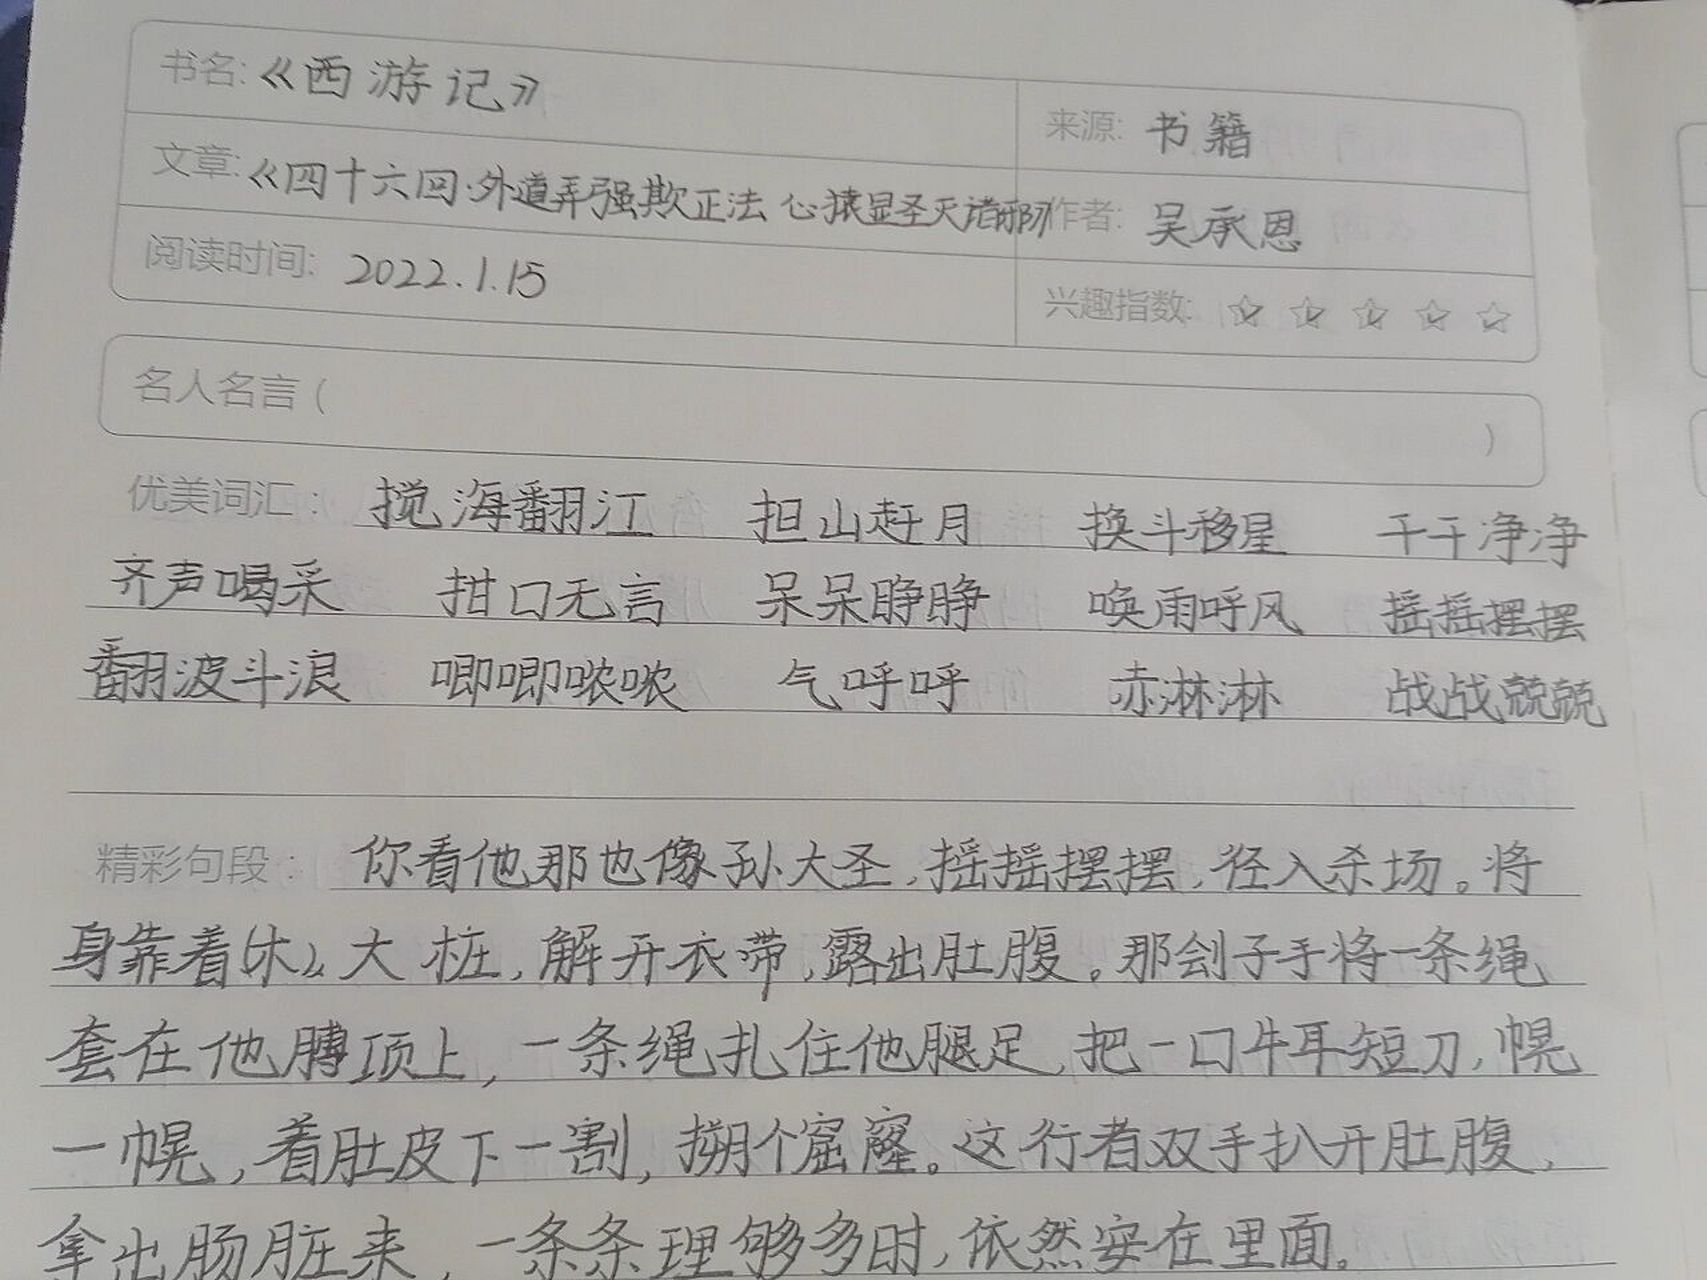 书名: 《西游记》
来源: 书籍
文章: 《四十六回·外道弄强欺正法 心猿显圣灭诸邪》
作者: 吴承恩
阅读时间: 2022.1.15
兴趣指数: ☆ ☆ ☆ ☆ ☆
名人名言 ( )
优美词汇: 搅海翻江 担山赶月 换斗移星 干干净净
齐声喝采 拑口无言 呆呆睁睁 唤雨呼风 摇摇摆摆
翻波斗浪 唧唧哝哝 气呼呼 赤淋淋 战战兢兢
精彩句段: 你看他那也像孙大圣,摇摇摆摆,径入杀场。将
身靠着大桩,解开衣带,露出肚腹。那刽子手将一条绳
套在他膊项上,一条绳扎住他腿足,把一口牛耳短刀,幌
一幌,着肚皮下一割,搠个窟窿。这行者双手扒开肚腹,
拿出肠脏来,一条条理够多时,依然安在里面。